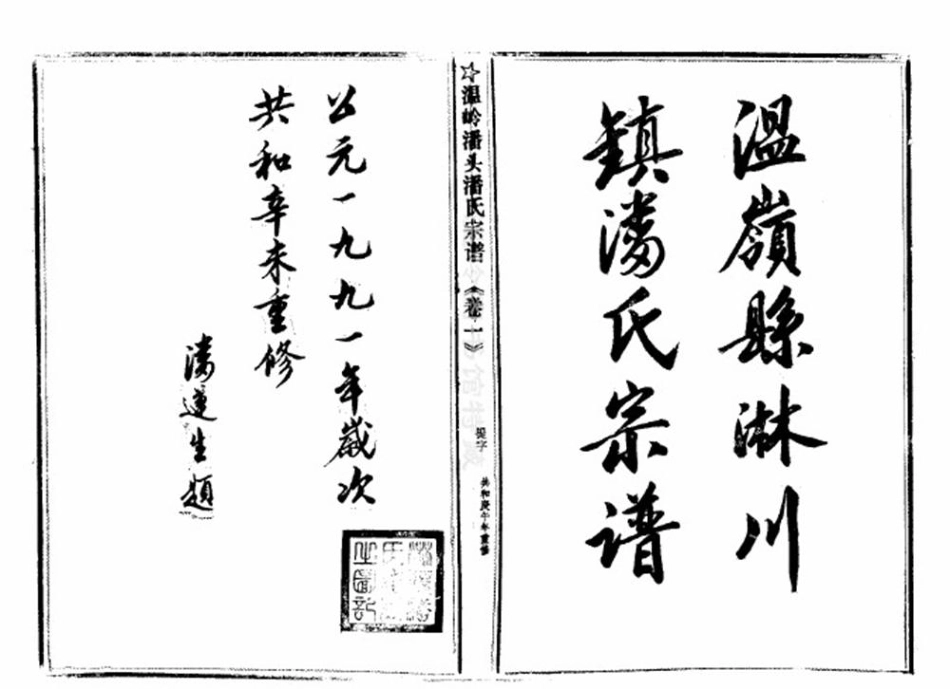 溫嶺縣淋川
鎮潘氏宗谱
☆温岭潘头潘氏宗谱《卷一》
题字
共和庚午年重修
公元一九九一年歲次
共和辛未重修
潘蓮生題